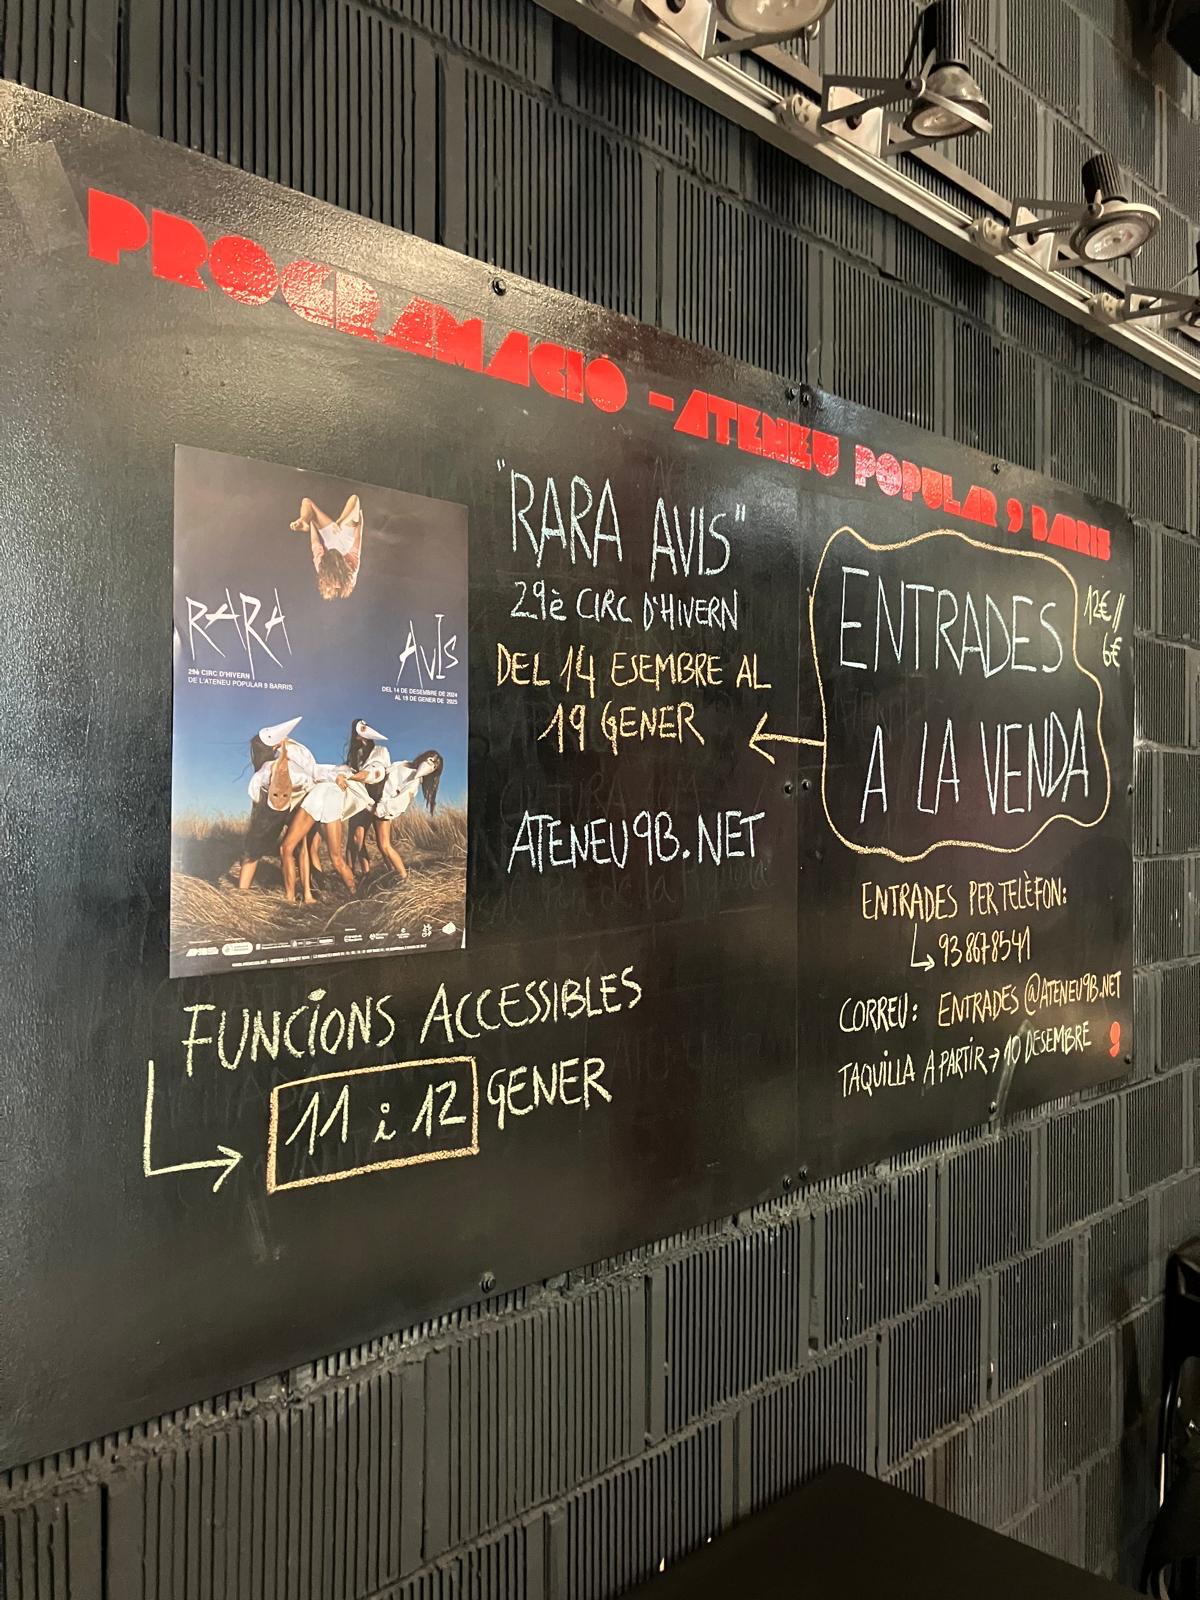 PROGRAMACIÓ - ATENEU POPULAR 9 BARRIS
RARA
AVIS
29è CIRC D'HIVERN
DE L'ATENEU POPULAR 9 BARRIS
DEL 14 DE DESEMBRE DE 2024
AL 19 DE GENER DE 2025
"RARA AVIS"
29è CIRC D'HIVERN
DEL 14 ESEMBRE AL
19 GENER
ATENEU9B.NET
FUNCIONS ACCESSIBLES
11 i 12 GENER
ENTRADES
A LA VENDA
12€ //
6€
ENTRADES PER TELÈFON:
93 8678541
CORREU: ENTRADES@ATENEU9B.NET
TAQUILLA A PARTIR → 10 DESEMBRE
9